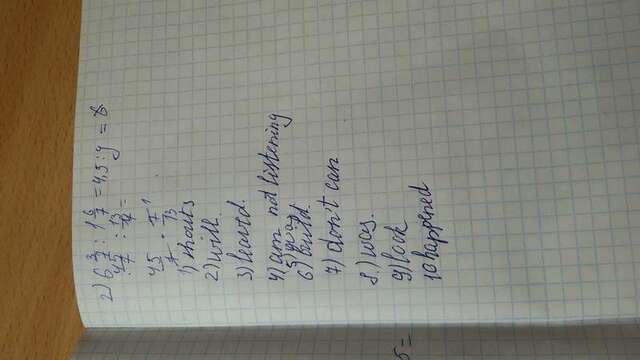 2) 6 3/7 : 1 6/7 = 4,5 : y = 6
45/7 : 13/7 =
45/7 · 7/13 1
1) shouts
2) will.
3) leaved.
4) am not listening
5) was
6) build.
7) don't can
8.) was.
9) look
10 happened
5=